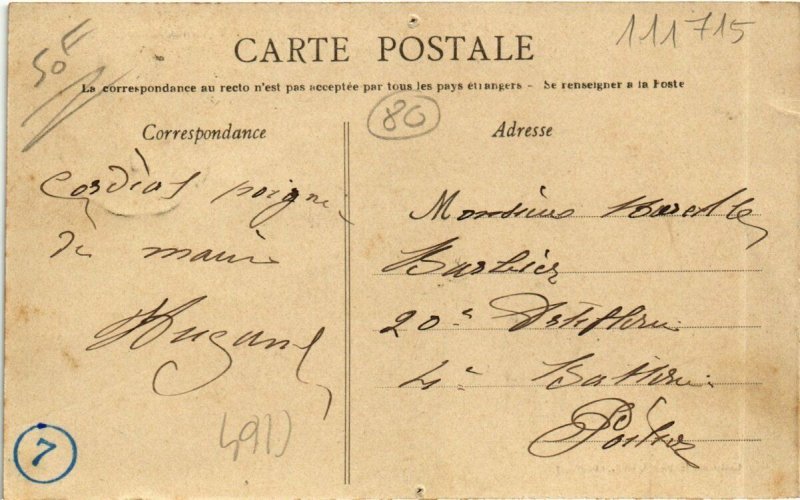 50 F
111715
CARTE POSTALE
La correspondance au recto n'est pas acceptée par tous les pays étrangers - Se renseigner a la Poste
80
Correspondance
Adresse
Cordial poigné
de main
Monsieur
Barbier
20e Artillerie
4e Batterie
Poitiers
7